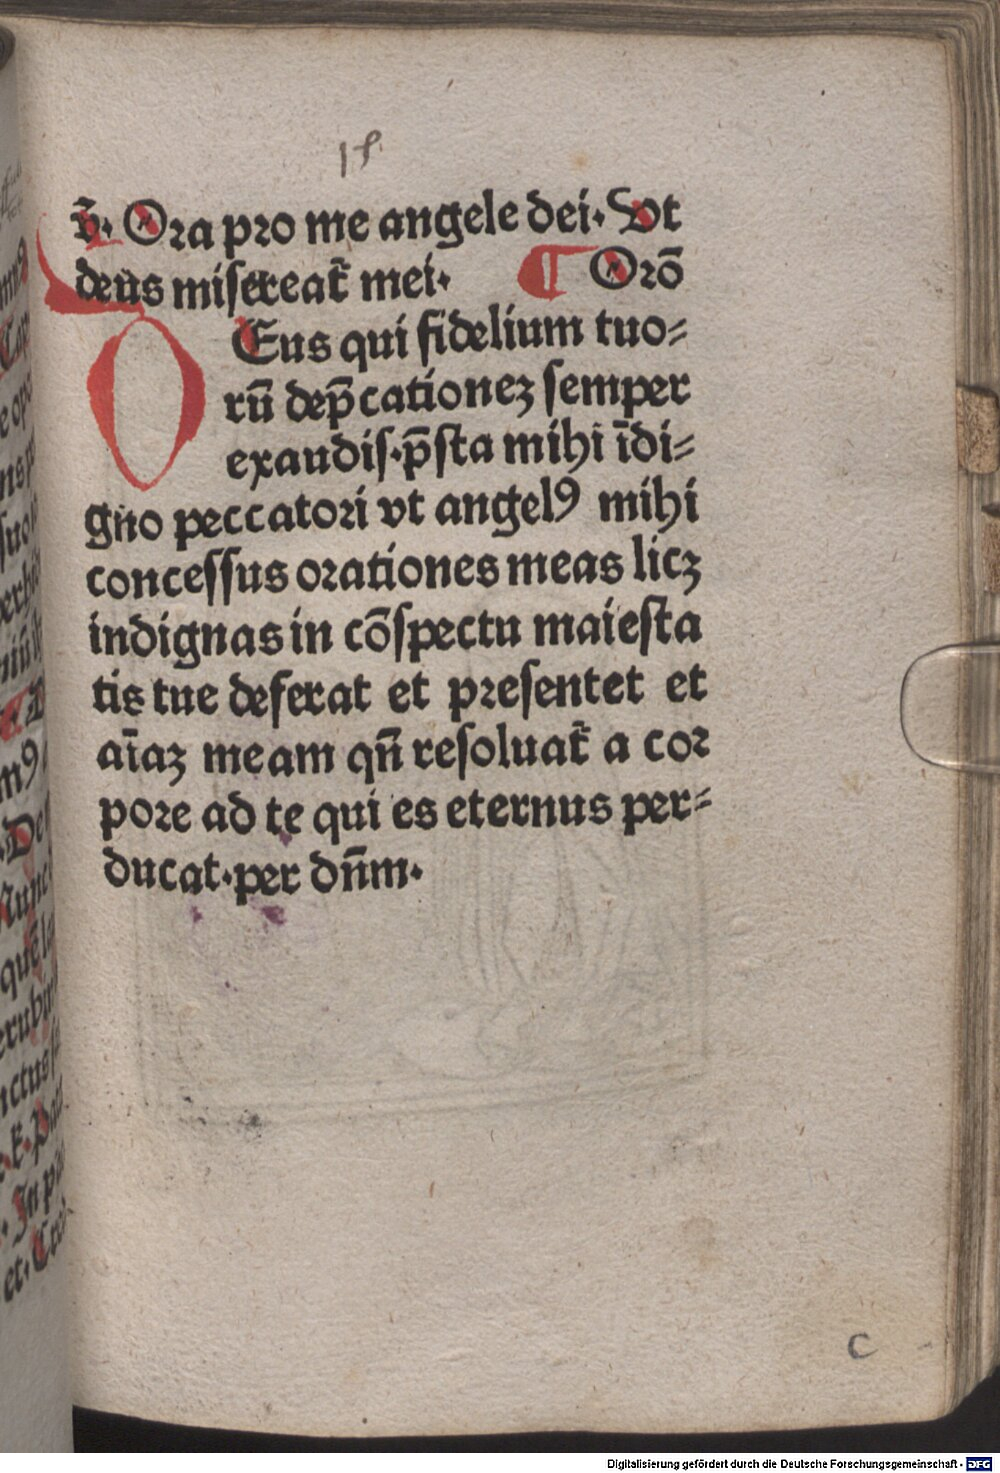 v̄. Ora pro me angele dei. Vt
deus misereat᷑ mei. ¶ Orō
DEus qui fidelium tuo⸗
rū dep̄cationeʒ semper
exaudis. p̄sta mihi īdi⸗
gno peccatori vt angelꝰ mihi
concessus orationes meas licʒ
indignas in cōspectu maiesta
tis tue deferat et presentet et
aīaʒ meam qn̄ resoluat᷑ a cor
pore ad te qui es eternus per⸗
ducat. per dn̄m.
c
Digitalisierung gefördert durch die Deutsche Forschungsgemeinschaft - DFG